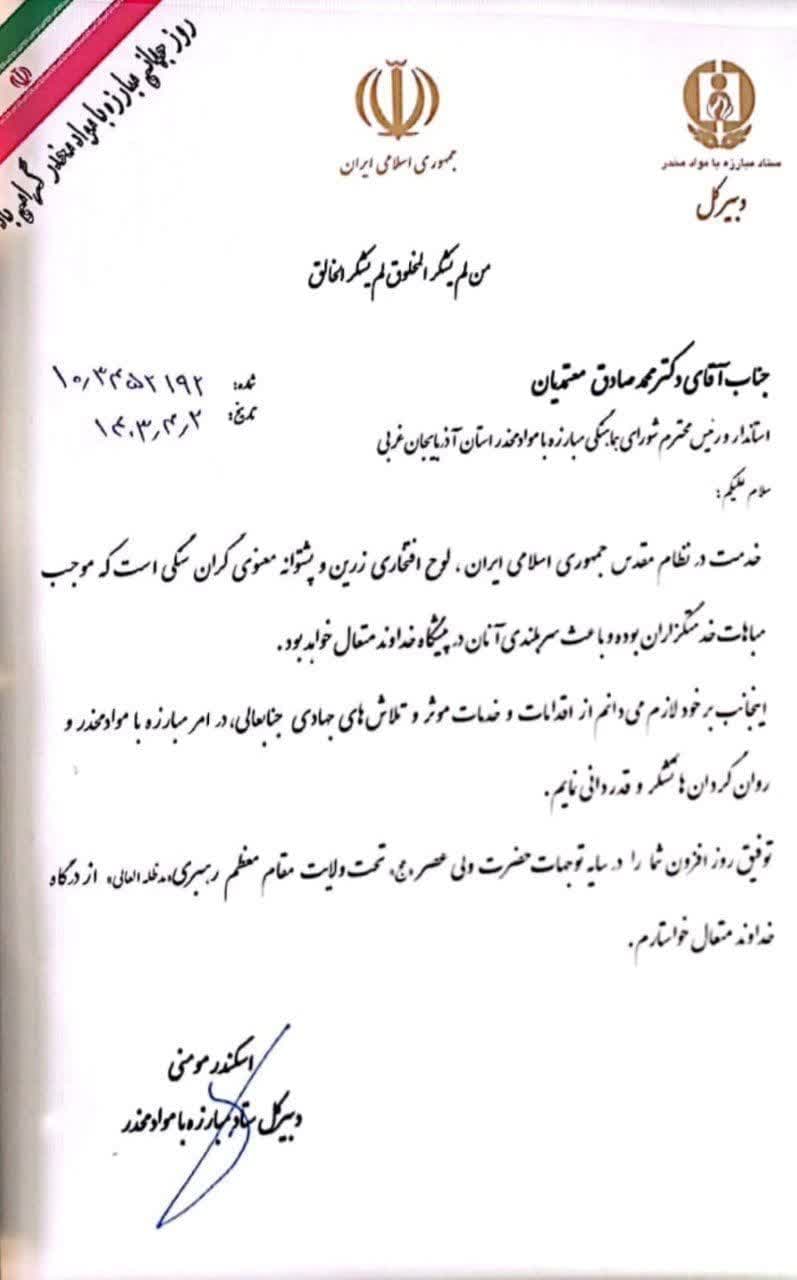 روز جهانی مبارزه با مواد مخدر گرامی باد
جمهوری اسلامی ایران
ستاد مبارزه با مواد مخدر
دبیرکل
من لم یشکر المخلوق لم یشکر الخالق
جناب آقای دکتر محمد صادق معتمدیان
شماره: ۱۰٫۳۴۵۲۱۹۲
استاندار و رئیس محترم شورای هماهنگی مبارزه با مواد مخدر استان آذربایجان غربی
تاریخ: ۱۴۰۳٫۴٫۲
سلام علیکم؛
خدمت در نظام مقدس جمهوری اسلامی ایران، لوح افتخاری زرین و پشتوانه معنوی گران سنگی است که موجب
مباهات خدمتگزاران بوده و باعث سربلندی آنان در پیشگاه خداوند متعال خواهد بود.
اینجانب بر خود لازم می دانم از اقدامات و خدمات موثر و تلاش های جهادی جنابعالی، در امر مبارزه با مواد مخدر و
روان گردان ها تشکر و قدردانی نمایم.
توفیق روز افزون شما را در سایه توجهات حضرت ولی عصر «عج» تحت ولایت مقام معظم رهبری «مدظله العالی» از درگاه
خداوند متعال خواستارم.
اسکندر مومنی
دبیرکل ستاد مبارزه با مواد مخدر